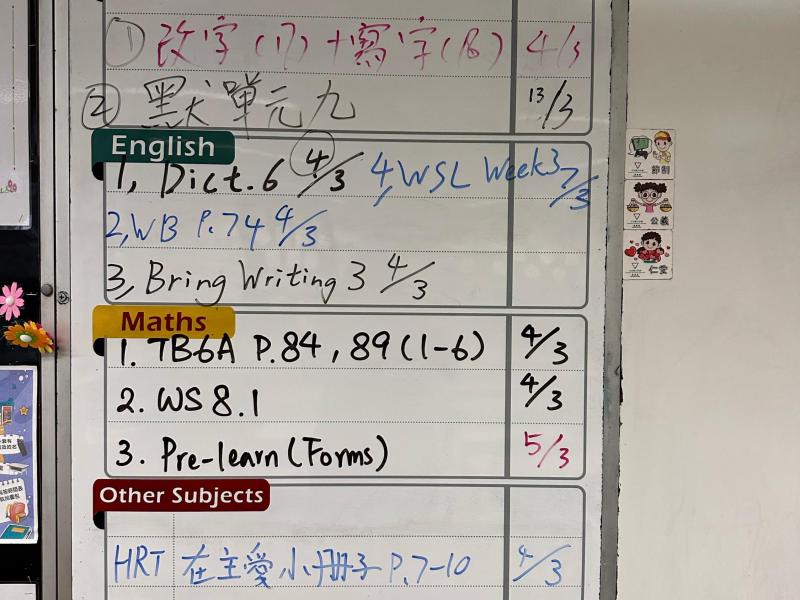 ① 改字(17)+寫字(18) 4/3
② 默單元九 13/3
English
1, Dict. 6 4/3 4, WSL Week3 7/3
2, WB P.74 4/3
3, Bring Writing 3 4/3
Maths
1. TB6A P.84, 89 (1-6) 4/3
2. WS 8.1 4/3
3. Pre-learn (Forms) 5/3
Other Subjects
HRT 在主愛小冊子 P.7-10 4/3
節制
公義
仁愛